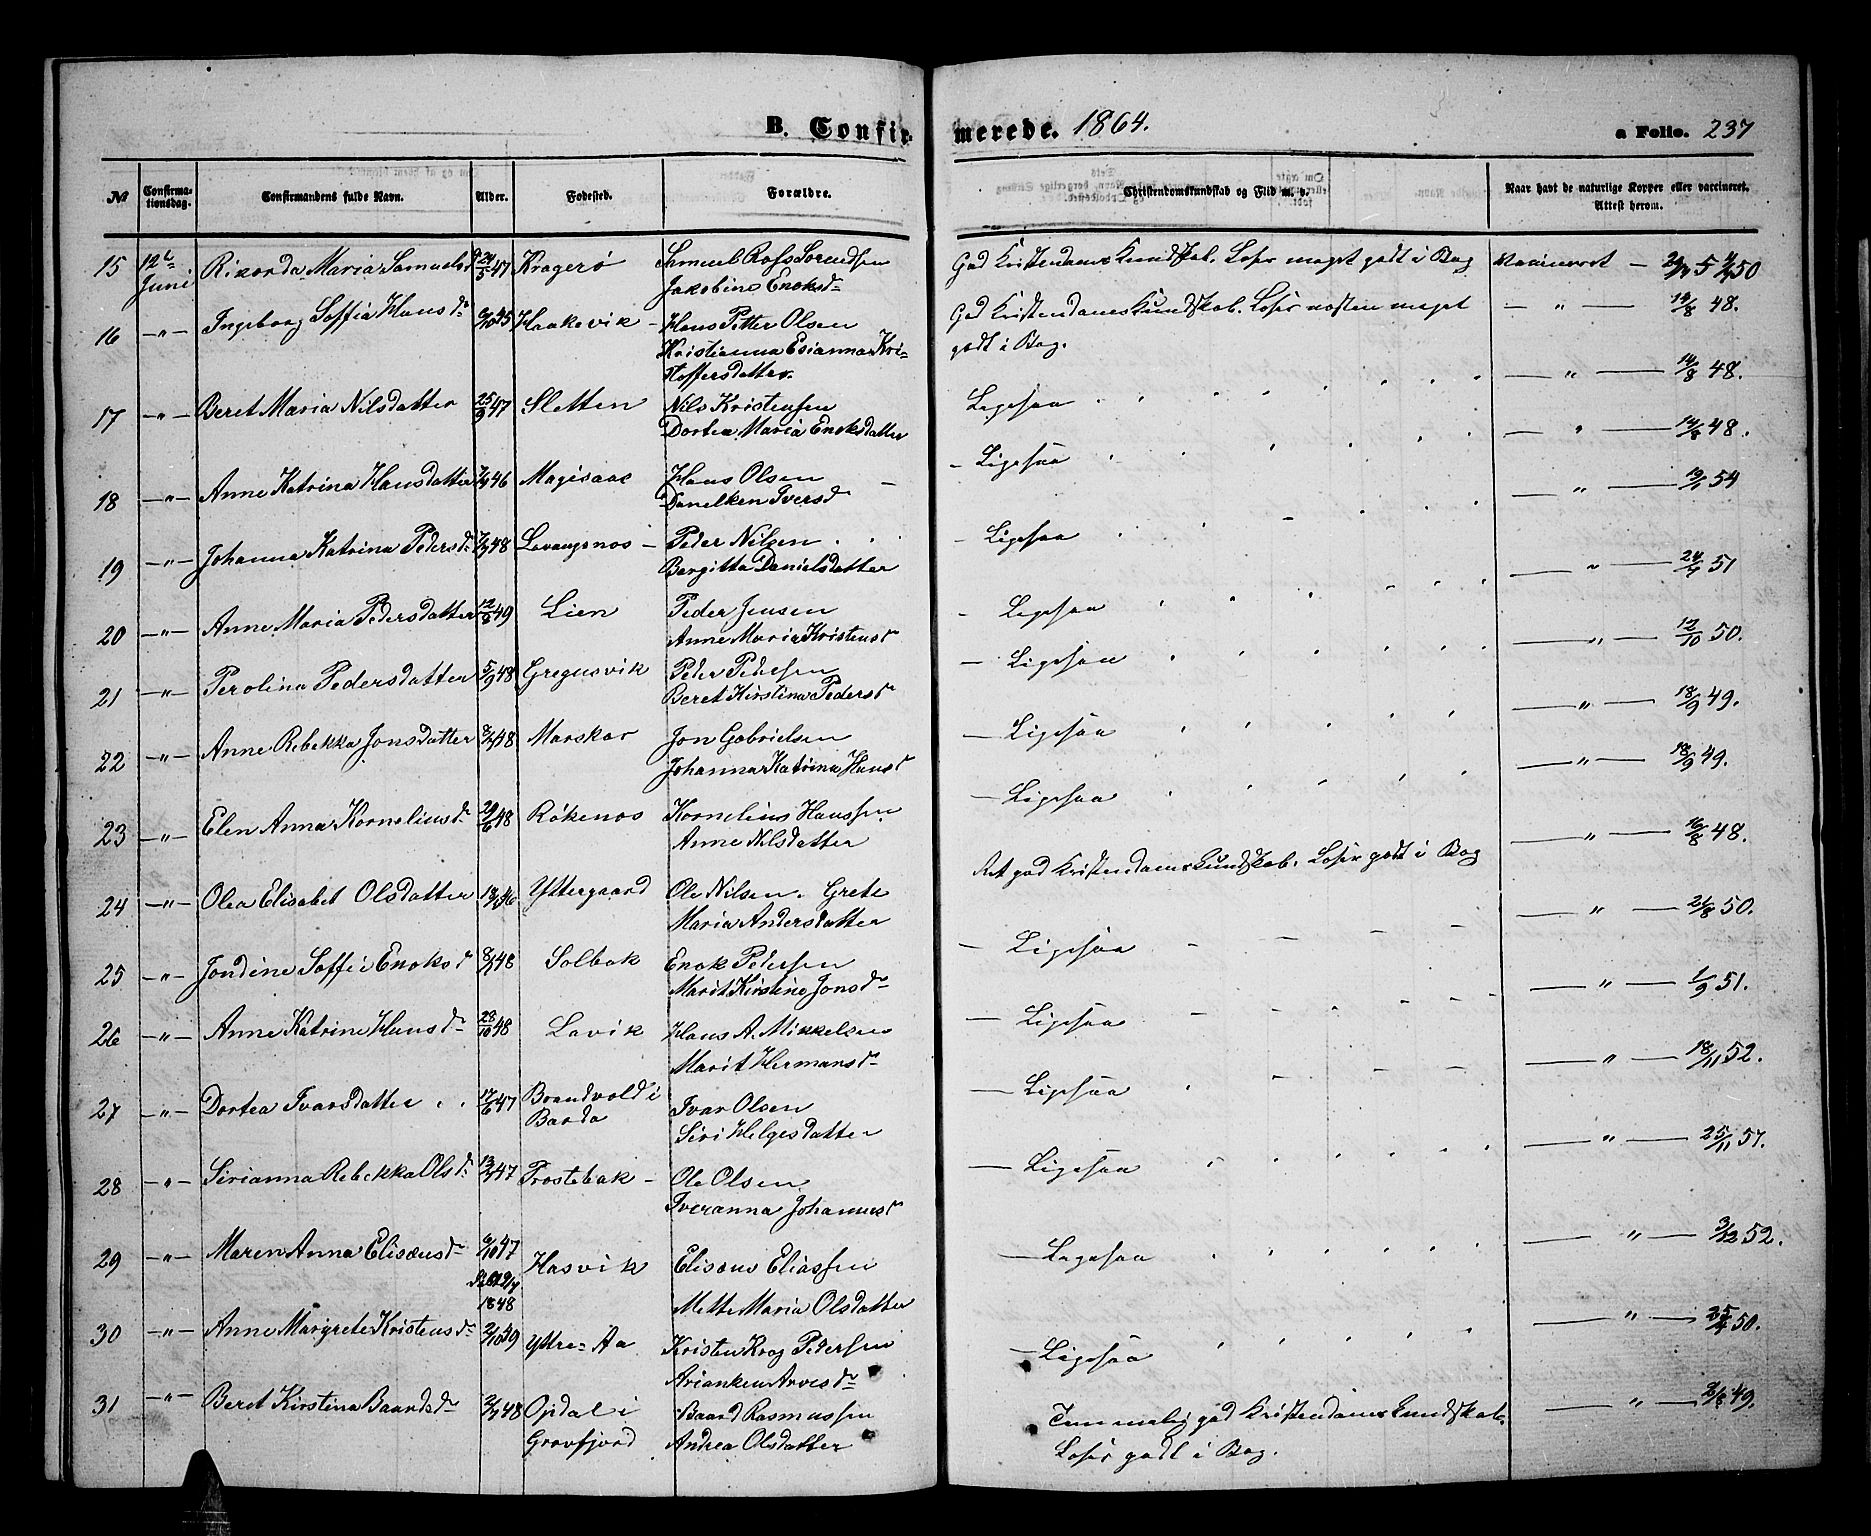 B. Confirmerede. 1864. a Folio. 237
No Confirmationsdag. Confirmandens fulde Navn. Alder. Fødested. Forældre. Christendomskundskab og Flid m. v. Naar havt de naturlige Kopper eller vaccineret. Attest herom.
15 12te Juni Ricorda Maria Samuelsdr 47 Kragerø Samuel Rafs Jakobine Enoksdr God Kristendoms Kundskab. Læser meget godt i Bog Vaccineret — 50
16 —"— Ingeborg Soffia Hansdr 6/10 45 Haakevik — Hans Petter Olsen
Kristianna Esianna Kristoffersdatter. God Kristendomskundskab. Læser næsten meget godt i Bog. — " — 14/8 48.
17 —"— Beret Maria Nilsdatter 25/9 47 Sletten Nils Kristensen
Dortea Maria Enoksdatter Ligesaa — " — 14/8 48.
18 —"— Anne Katrina Hansdatter 46 Hans Olsen
Danelken Iversdr — Ligesaa — " — 48.
19 —"— Johanna Katrina Pedersdr 48 Lavangsnes — Peder Nilsen
Bergitta Danielsdatter — Ligesaa — " — 54
20 —"— Anne Maria Pedersdatter 12/8 49 Lien Peder Jensen
Anne Maria Kristensdr — Ligesaa — " — 51
21 —"— Perolina Pedersdatter 5/9 48 Gregusvik Peder Pedersen
Beret Kirstina Pedersdr — Ligesaa — " — 12/10 50.
22 —"— Anne Rebekka Jonsdatter 48 Jon Gabrielsen
Johanna Katrina Hansdr — Ligesaa — " — 18/9 49.
23 —"— Elen Anna Korneliusdr 29/6 48 Røkenes Kornelius Hanssen
Anne Nilsdatter — Ligesaa — " — 18/9 49.
24 —"— Olea Elisabet Olsdatter 46 Yttergaard Ole Nilsen. Grete
Maria Andersdatter Ret god Kristendomskundskab. Læser godt i Bog — " — 16/8 48.
25 —"— Jondine Soffie Enoksdr 48 Solbak Enok Pedersen
Marit Kirstine Jonsdr — Ligesaa — " — 21/8 50.
26 —"— Anne Katrine Hansdr 28/10 48 Lavik Hans A. Mikkelsen
Marit Hermansdr — Ligesaa — " — 1/9 51.
27 —"— Dortea Ivarsdatter 17/6 47 Brandvold i
Bardo Ivar Olsen
Siri Helgesdatter — Ligesaa — " — 18/11 52.
28 —"— Sirianna Rebekka Olsdr 47 Prostebak — Ole Olsen
Iveranna Johannesdr — Ligesaa — " — 25/11 57.
29 —"— Maren Anna Elisæusdr 6/10 47
1848 Hasvik Elisæus Eliassen
Mette Maria Olsdatter — Ligesaa — " — 3/12 52.
30 —"— Anne Margrete Kristensdr 2/10 49 Yttre-Aa Kristen Krog Pedersen
Arianken Arvesdr — Ligesaa — " — 50.
31 —"— Beret Kirstina Baardsdr 48 Opdal i
Gravfjord Baard Rasmussen
Andrea Olsdatter Temmelig god Kristendomskundskab.
Læser godt i Bog. — " — 49.